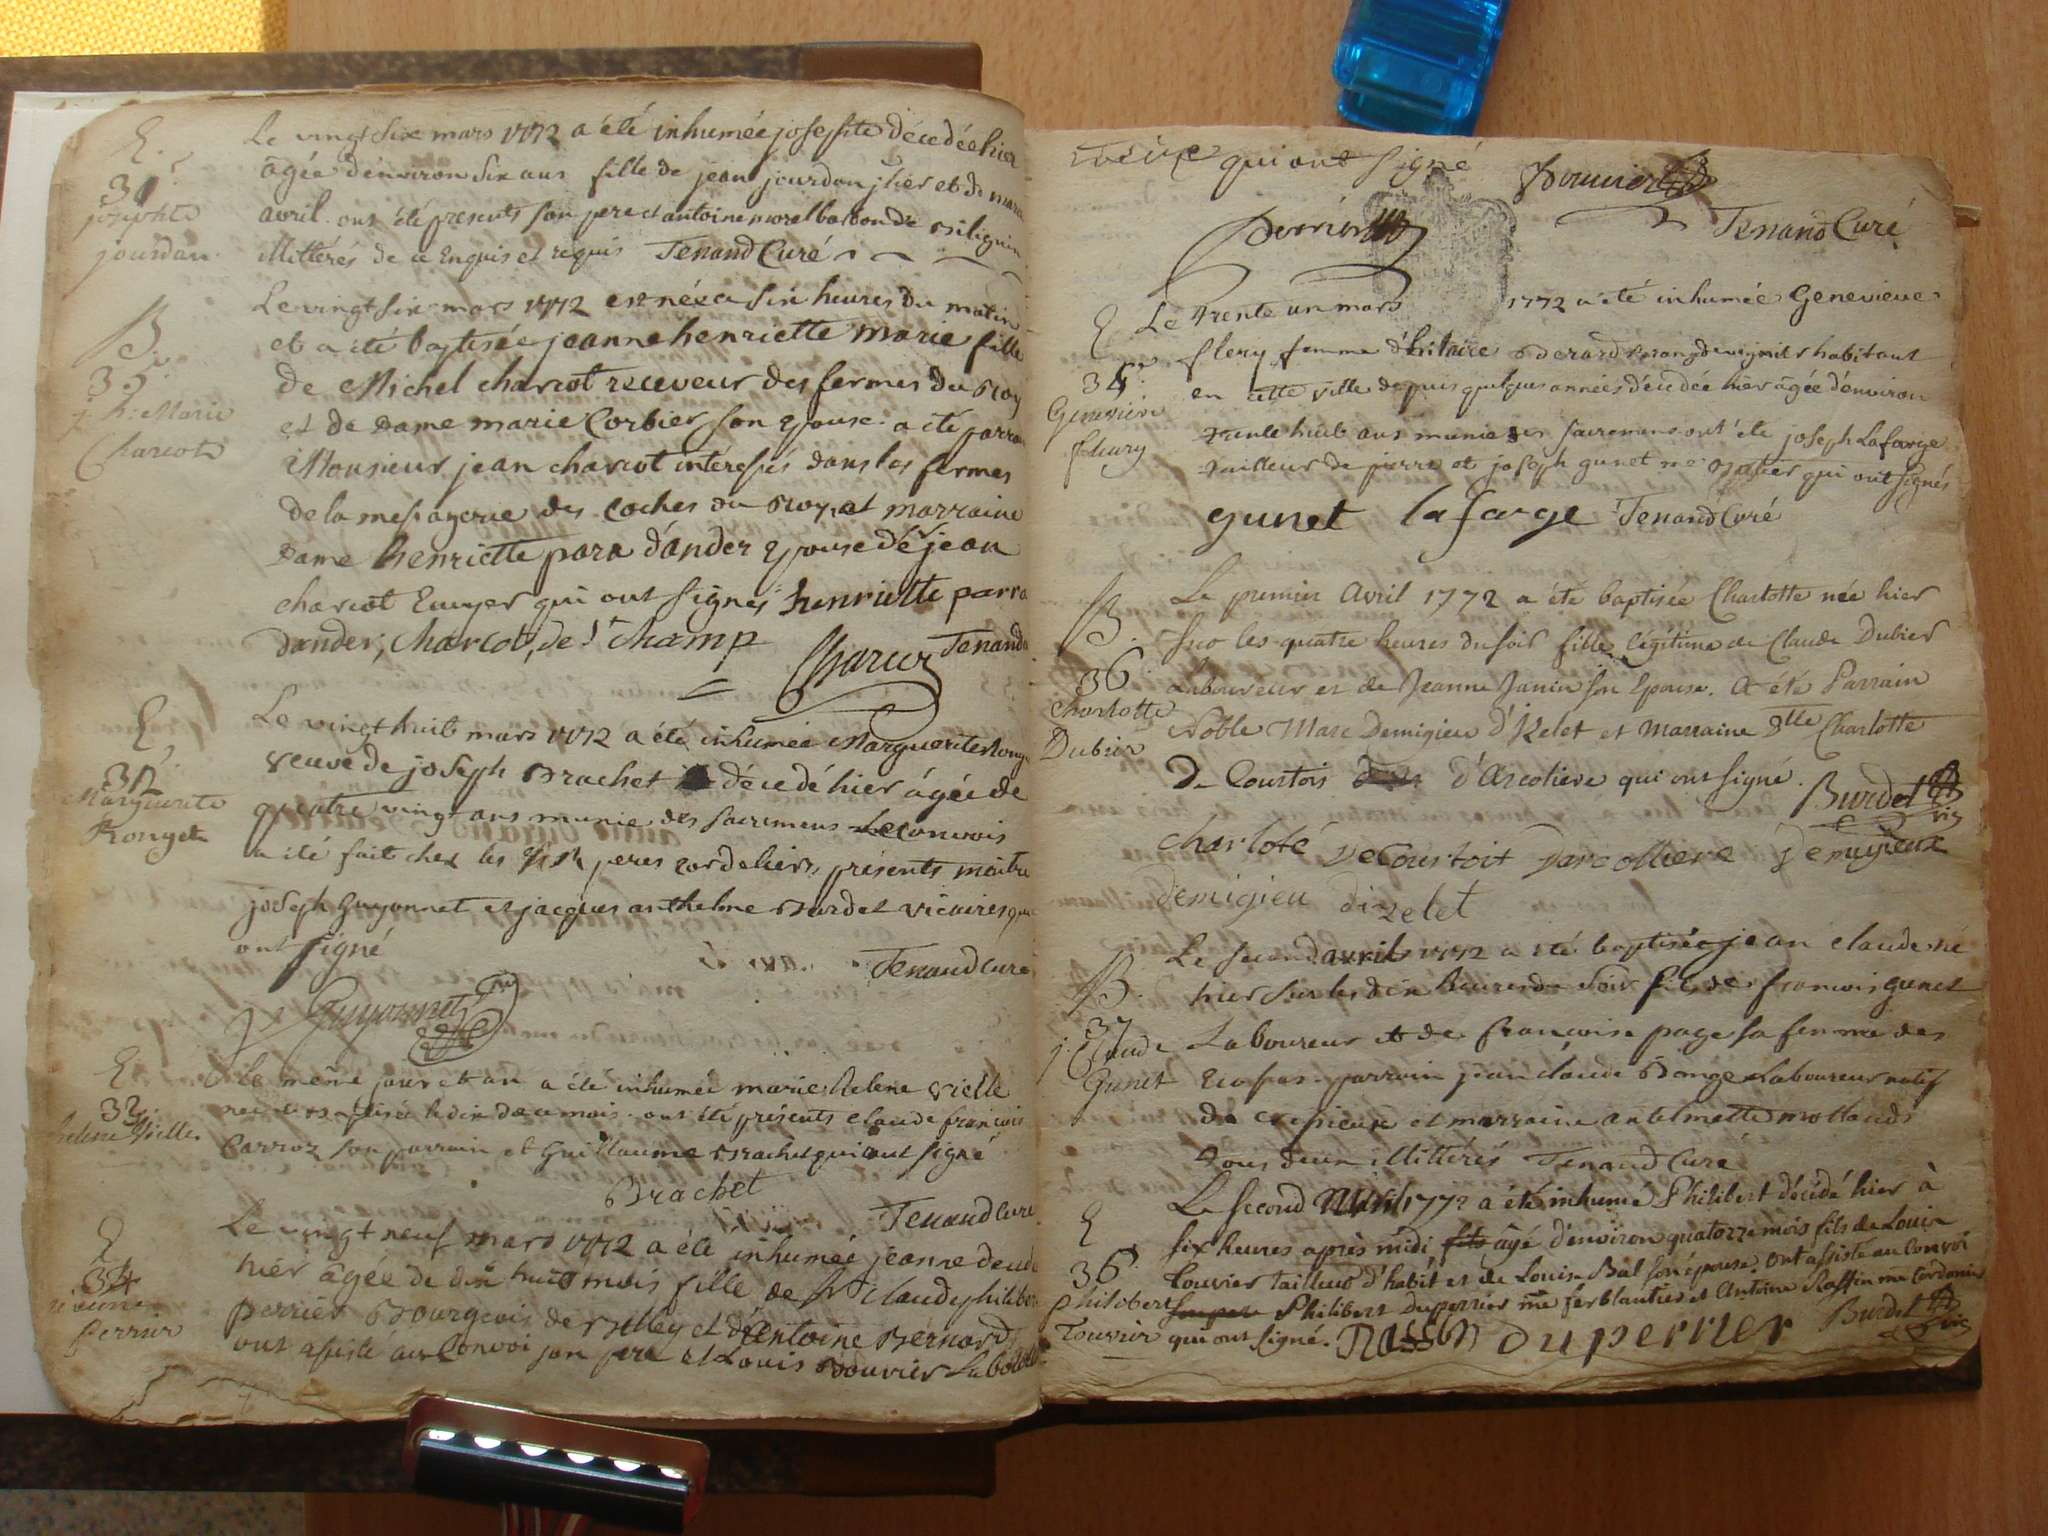 E.
31.e
josephte
jourdan.
Le vingt six mars 1772 a été inhumée josephte décedée hier
âgée d'environ six ans fille de jean jourdan jher et de marie
avril. ont été presents son pere et antoine morel bardon de Billignin
illittérés de ce Enquis et requis Tenand Curé
B.
35.
h: Marie
Charcot
Le vingt six mars 1772 est née a six heures du matin
et a été baptisée jeanne henriette marie fille
de Michel charcot receveur des fermes du Roy
et de Dame marie Corbier son Epouse. a été parrain
Monsieur jean charcot intéressés dans les fermes
de la messagerie des Coches du Roy, et marraine
Dame henriette para d'ander Epouse de Sr jean
charcot Ecuyer qui ont signés henriette parra
dander, Charcot, de St champ
Charcot Tenand
E.
32.e
Marguerite
Rouget
Le vingt huit mars 1772 a été inhumée Marguerite Rouget
veuve de joseph Brachet décedé hier âgée de
quatre vingt ans munie des sacremens Le convois
a été fait chex les RR peres cordeliers, présents maitre
joseph Guyonnet et jacques anthelme Burdet vicaires qui
ont signé
Tenand Curé
Guyonnet
E
33
helene Vielle
Le même jour et an a été inhumée marie helene vielle
née et baptisée le dix de ce mois. ont été présents claude francois
Carroz son parrain et Guillaume Brachet qui ont signé
Brachet
Tenand Curé
E
34
jeanne
Perrier
Le vingt neuf mars 1772 a été inhumée jeanne decedée
hier âgée de dix huit mois fille de Sr Claude philibert
perrier Bourgeois de Belley et d'Antoine Bernard
ont assisté au Convoi son pere et Louis Bouvier
qui ont signé
Bouvier
Perrier
Tenand Curé
E
35.e
Genevieve
fleury
Le trente un mars 1772 a été inhumée Genevieve
flery femme d'hilaire Berard habitant
en cette ville depuis quelques années décedée hier âgée d'environ
trente huit ans munie des sacremens ont été joseph Lafarge
tailleur de pierre et joseph gunet me qui ont signés
gunet lafarge Tenand Curé
B.
36.
Charlotte
Dubier
Le premier Avril 1772 a été baptisée Charlotte née hier
sur les quatre heures du soir fille légitime de Claude Dubier
Laboureur et de Jeanne Janin son Epouse. A été Parrain
Noble Marc Demigieu d'Izelet et Marraine Dlle Charlotte
De Courtois d'Arcoliere qui ont signé. Burdet
vic
charlote DeCourtoit Darcolliere Demigieux
demigieu dizelet
B.
37
j. Claude
Gunet
Le second avril 1772 a été baptisée jean claude né
hier sur les dix heures du soir fils de francois gunet
Laboureur et de françoise page sa femme des
Ecasses. parrain jean claude Bonge Laboureur natif
de crepieux et marraine antelmette mollands
tous deux illittérés Tenand Curé
E
36.
Philibert
Louvier
Le second Avril 1772 a été inhumé Philibert décédé hier à
six heures après midi fils âgé d'environ quatorze mois fils de Louis
Louvier tailleur d'habit et de Louise Bal son épouse. Ont assisté au Convoi
Philibert Duperrier me ferblantier et Antoine Raffin me Cordonnier
qui ont signé. Raffin Duperrier Burdet
vic